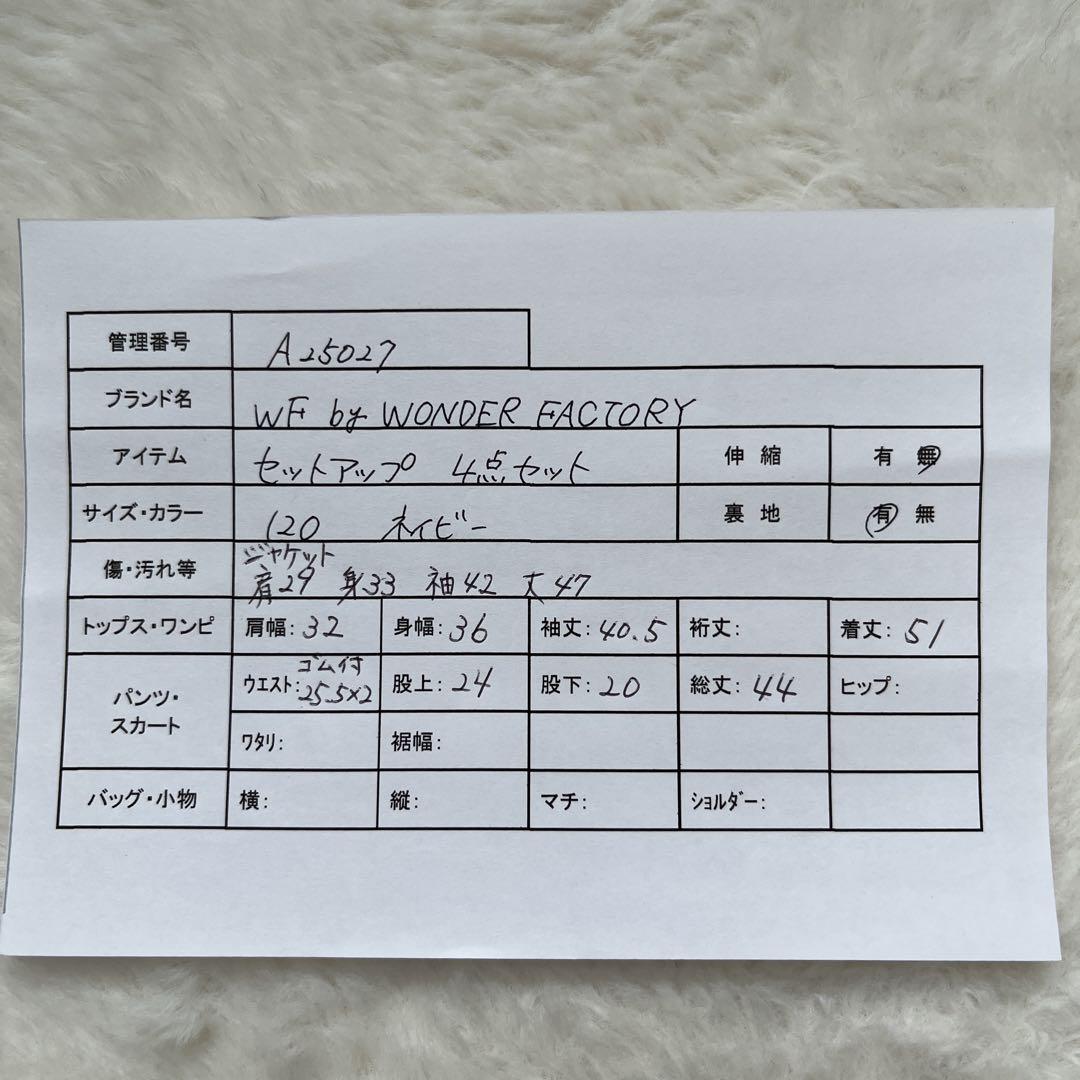 管理番号 A25027
ブランド名 WF by WONDER FACTORY
アイテム セットアップ 4点セット 伸縮 有 無
サイズ・カラー 120 ネイビー 裏地 有 無
ジャケット
傷・汚れ等 肩29 身33 袖42 丈47
トップス・ワンピ 肩幅: 32 身幅: 36 袖丈: 40.5 裄丈: 着丈: 51
ゴム付
パンツ・スカート ウエスト: 25.5×2 股上: 24 股下: 20 総丈: 44 ヒップ:
ワタリ: 裾幅:
バッグ・小物 横: 縦: マチ: ショルダー: